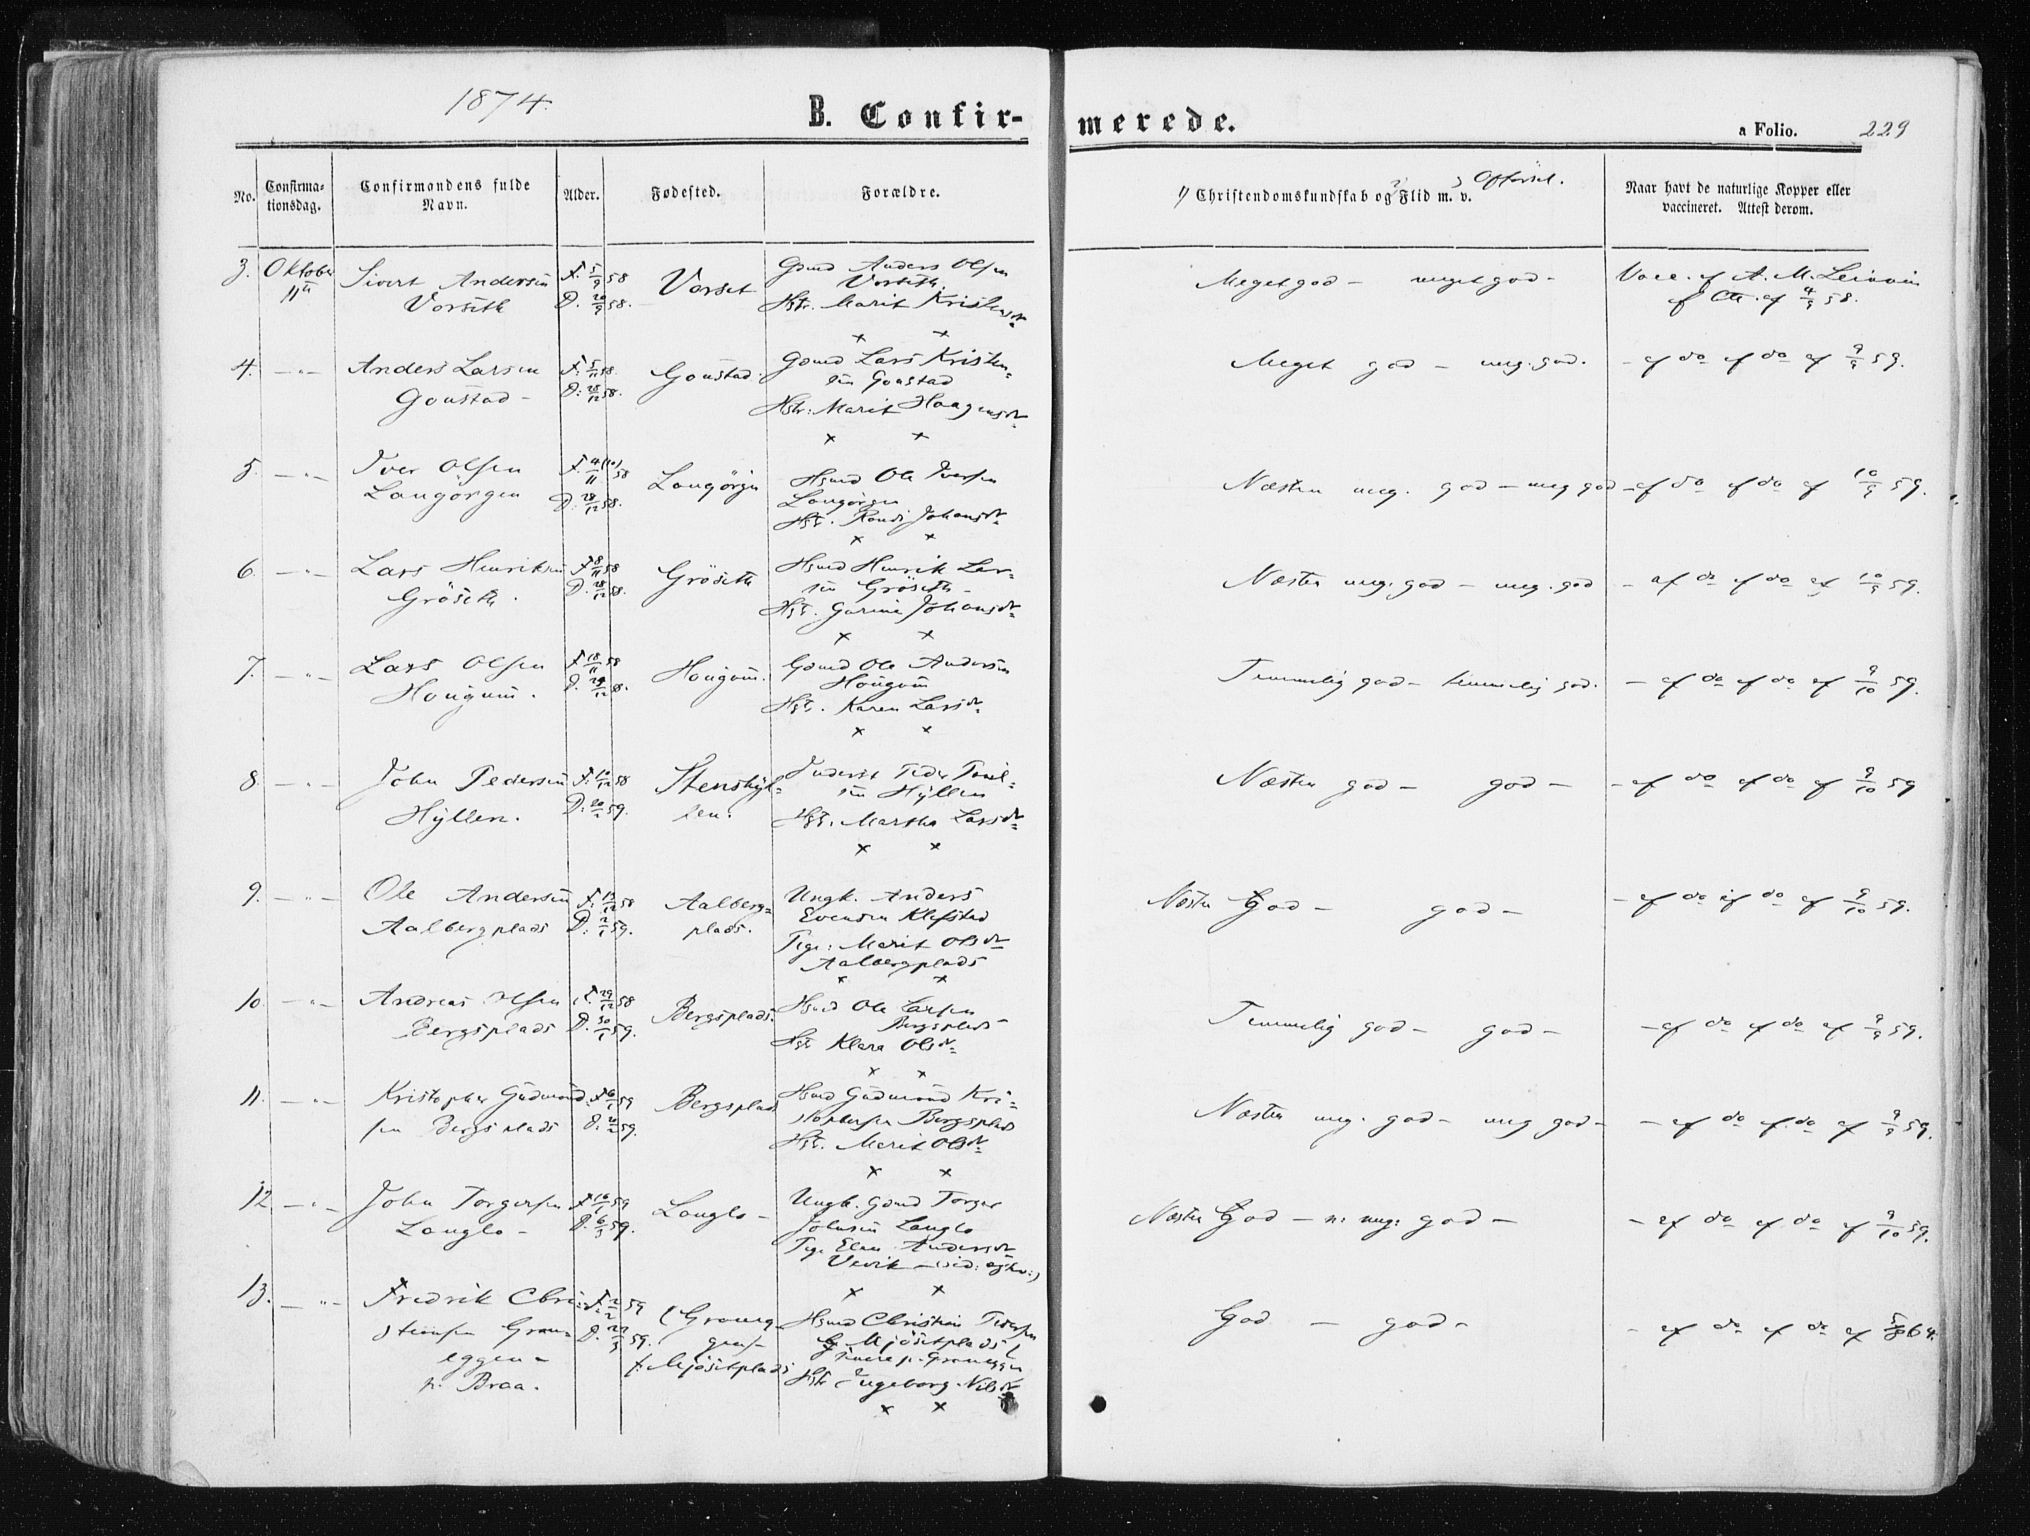 1874.
B. Confir-
merede.
a Folio. 229
No.
Confirma-
tionsdag.
Confirmandens fulde
Navn.
Alder.
Fødested.
Forældre.
1) Christendomskundskab og 2) Flid m. v. 3) Opførsel.
Naar havt de naturlige Kopper eller
vaccineret. Attest derom.
3. Oktober
11te
Sivert Andersen
Vorseth
F. 5/9 58
D. 20/9 58.
Vorset
Gmd Anders Olsen
Vorseth
Hstr. Marit Kristensdr
Meget god - meget god -
Vacc. af A. M.
af Att. af 4/9 58.
4. - " -
Anders Larsen
Goustad -
F. 5/11 58.
D. 28/12 58.
Goustad.
Gmd Lars Kristen-
sen Goustad
Hstr: Marit Haagensdr
Meget god - meg. god.
- af do af do af 9/9 59.
5. - " -
Iver Olsen
Langörgen
F. 4(10)/11 58
D. 28/12 58.
Langörgen
Hsmd Ole Iversen
Langörgen
Hst. Randi Johansdr
Næsten meg. god - meg god
- af do af do af 10/9 59.
6. - " -
Lars Henriksen
Gröseth.
F. 8/11 58
D. 28/12 58.
Gröseth
Hsmd Henrik Lar-
sen Gröseth -
Hst. Gurine Johansdr
Næsten meg. god - meg. god
- af do af do af 10/9 59.
7. - " -
Lars Olsen
Hougum.
F. 18/11 58
D. 29/12 58.
Hougum.
Gmd Ole Andersen
Hougum
Hst. Karen Larsdr
Temmelig god - temmelig god.
- af do af do af 9/10 59.
8. - " -
John Pedersen
Hyllen.
F. 10/12 58
D. 20/2 59.
Stenshyl-
len.
Inderst Peder
sen Hyllen
Hst. Martha Larsdr
Næsten god - god -
- af do af do af 9/10 59
9. - " -
Ole Andersen
Aalbergplads
F. 19/12 58
D. 2/1 59.
Aalberg-
plads.
Ungk. Anders
Evensen Klefstad
Pige: Marit Olsdr
Aalbergplads
Næsten God - god -
- af do af do af 9/10 59.
10. - " -
Andreas Olsen
Bergsplads
F. 29/12 58
D. 30/1 59.
Bergsplads.
Hsmd Ole Larsen
Bergsplads -
Hst Klara Olsdr
Temmelig god - god -
- af do af do af 9/9 59.
11. - " -
Kristopher Gudmund-
sen Bergsplads
F. 6/1 59
D. 20/2 59.
Bergsplads
Hsmd Gudmund Kri-
stophersen Bergsplads
Hst. Marit Olsdr
Næsten meg. god - meg god -
- af do af do af 9/9 59.
12. - " -
John Torgersen
Langlo -
F. 16/1 59
D. 6/3 59.
Langlo -
Ungk. Gmd Torger
Johnsen Langlo
Pige Elen Andersdr
Vevik
Næsten God - n: meg: god -
- af do af do af 9/10 59.
13. - " -
Fredrik Chri-
stensen Gran-
eggen -
p. Braa.
F. 2/2 59
D. 27/3 59.
Mjösetplads
Hsmd Christian Pedersen
Mjösetplads
p. Graneggen
Hstr Ingeborg Nilsdr
God - god -
- af do af do af 5/8 64.